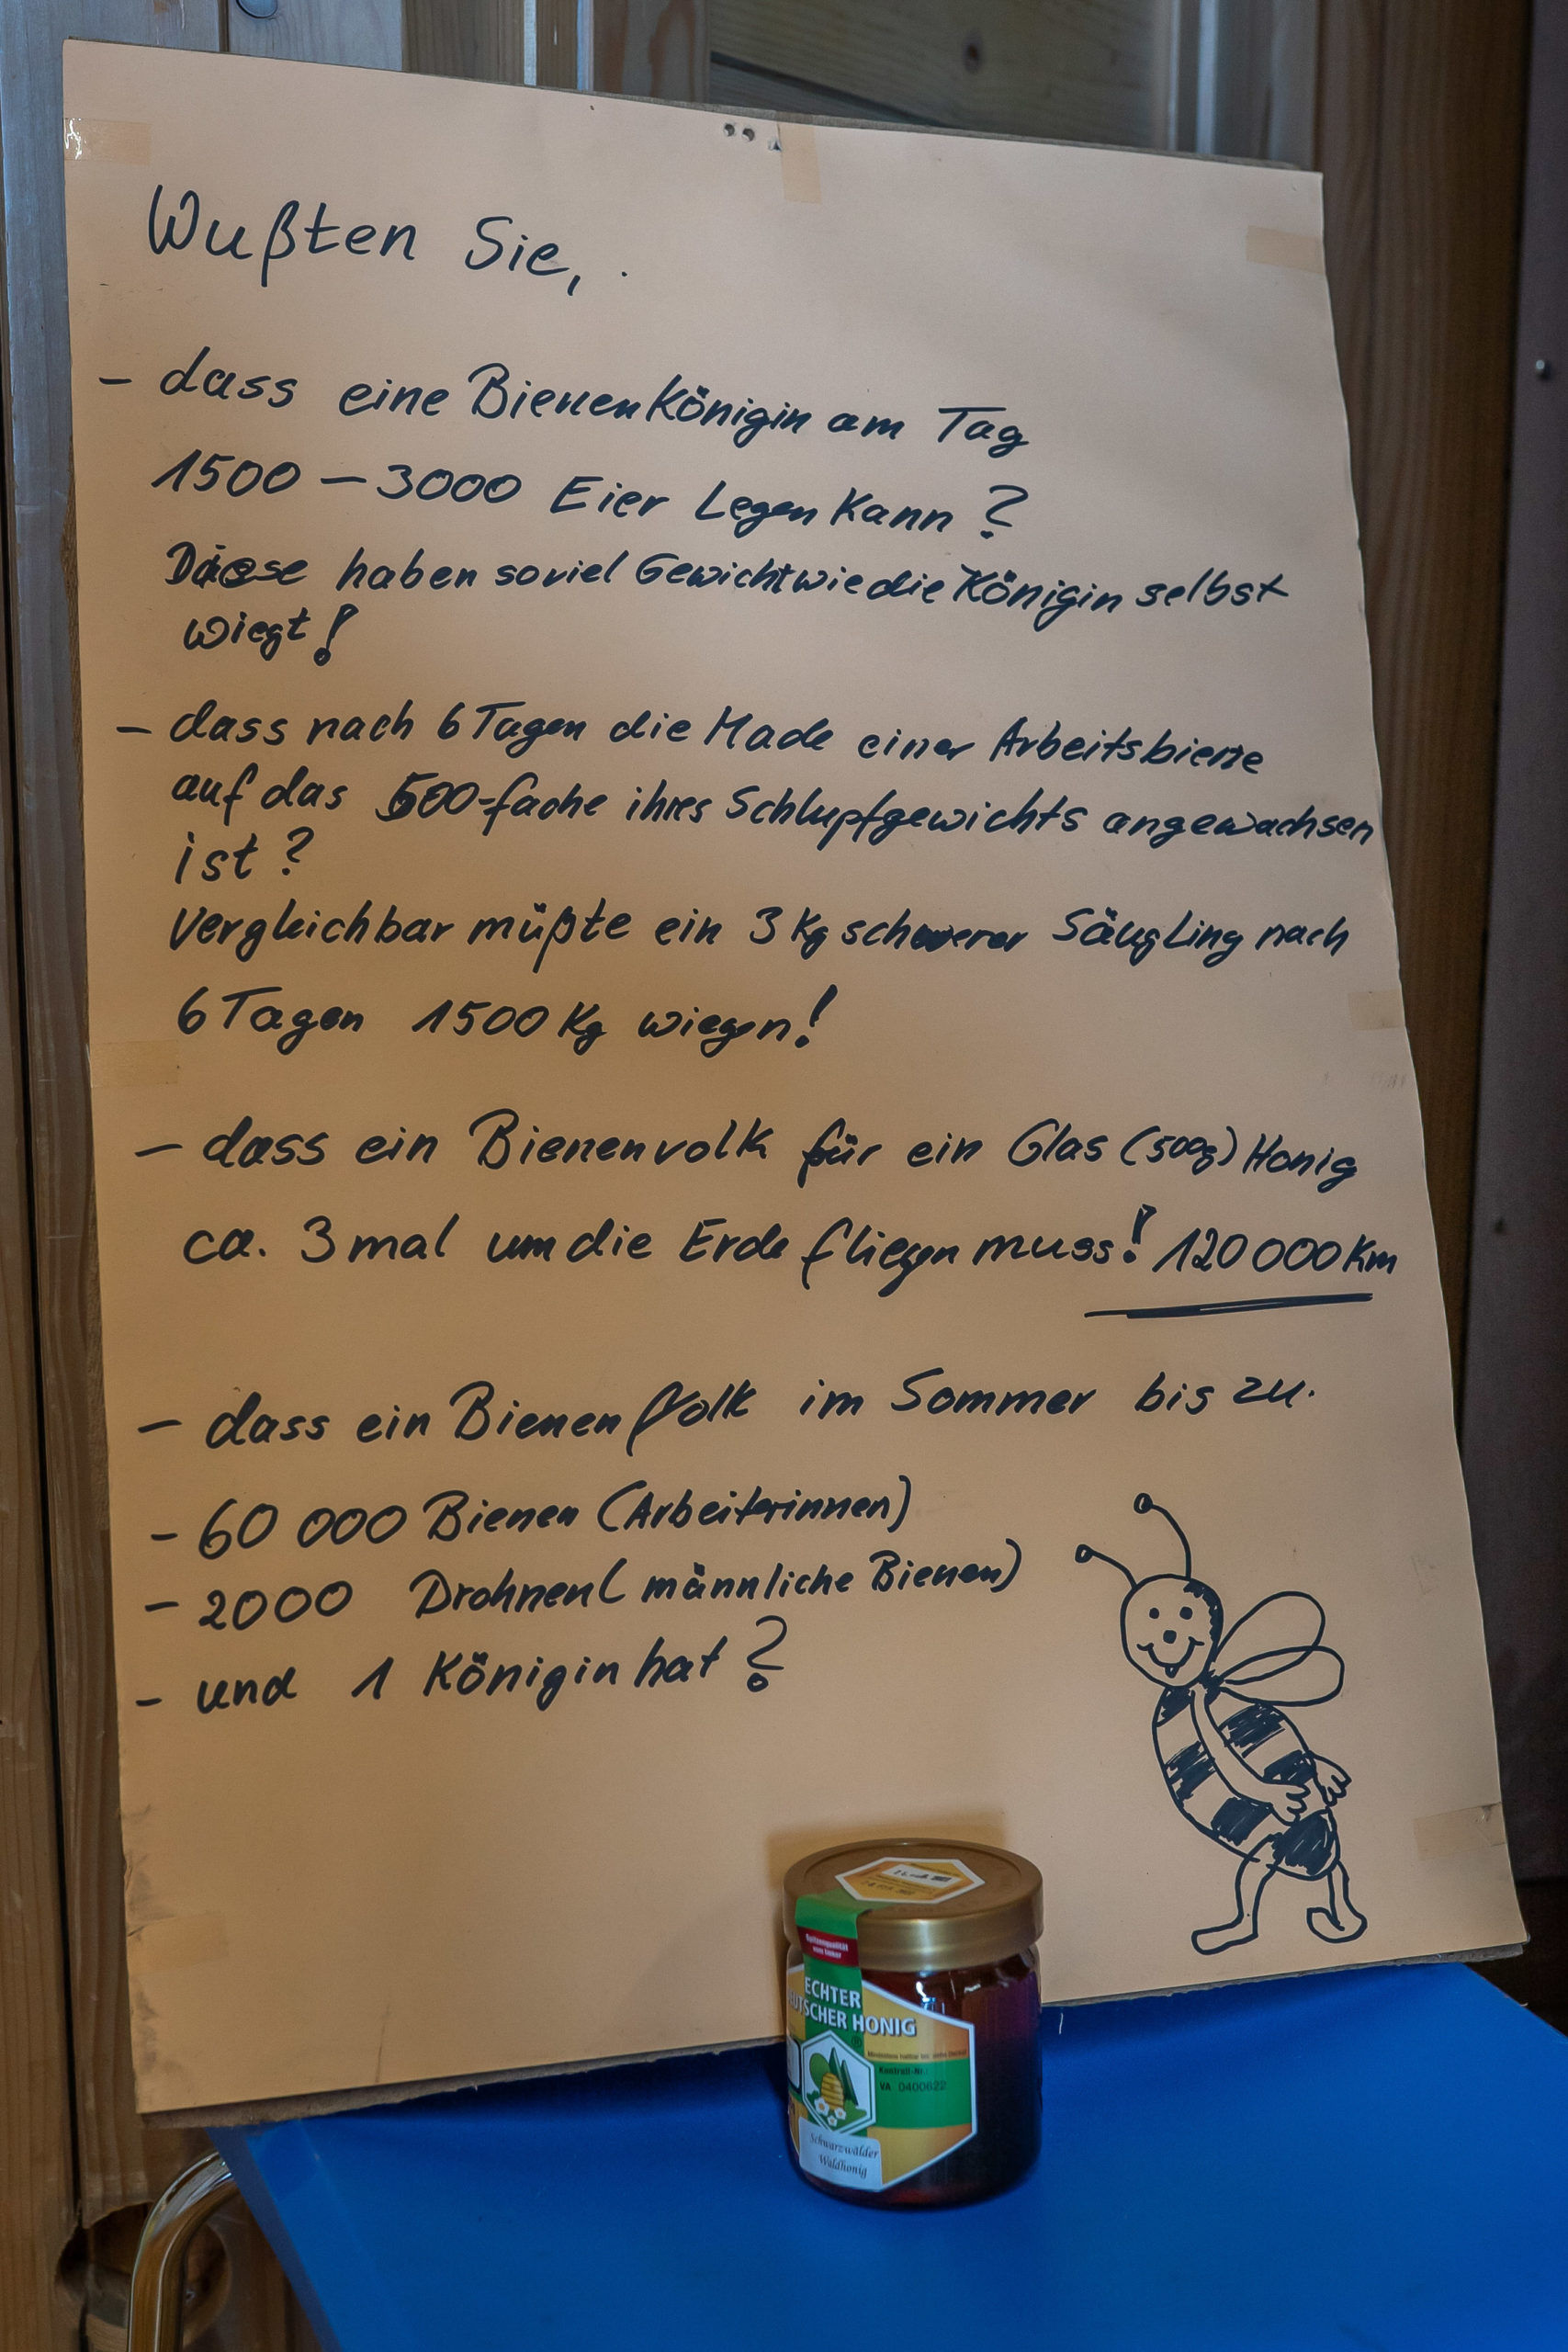 Wußten Sie,
- dass eine BienenKönigin am Tag
1500 - 3000 Eier Legen Kann?
Diese haben soviel Gewicht wie die Königin selbst
wiegt!
- dass nach 6 Tagen die Made einer Arbeitsbiene
auf das 500-fache ihres Schlupfgewichts angewachsen
ist?
Vergleichbar müßte ein 3 Kg schwerer Säugling nach
6 Tagen 1500 Kg wiegen!
- dass ein Bienenvolk für ein Glas (500g) Honig
ca. 3 mal um die Erde fliegen muss! 120 000 Km
- dass ein Bienen Volk im Sommer bis zu.
- 60 000 Bienen (Arbeiterinnen)
- 2000 Drohnen (männliche Bienen)
- und 1 Königin hat?
Spitzenqualität
vom Imker
ECHTER
DEUTSCHER HONIG
Kontroll-Nr.:
VA 0400622
Schwarzwälder
Waldhonig